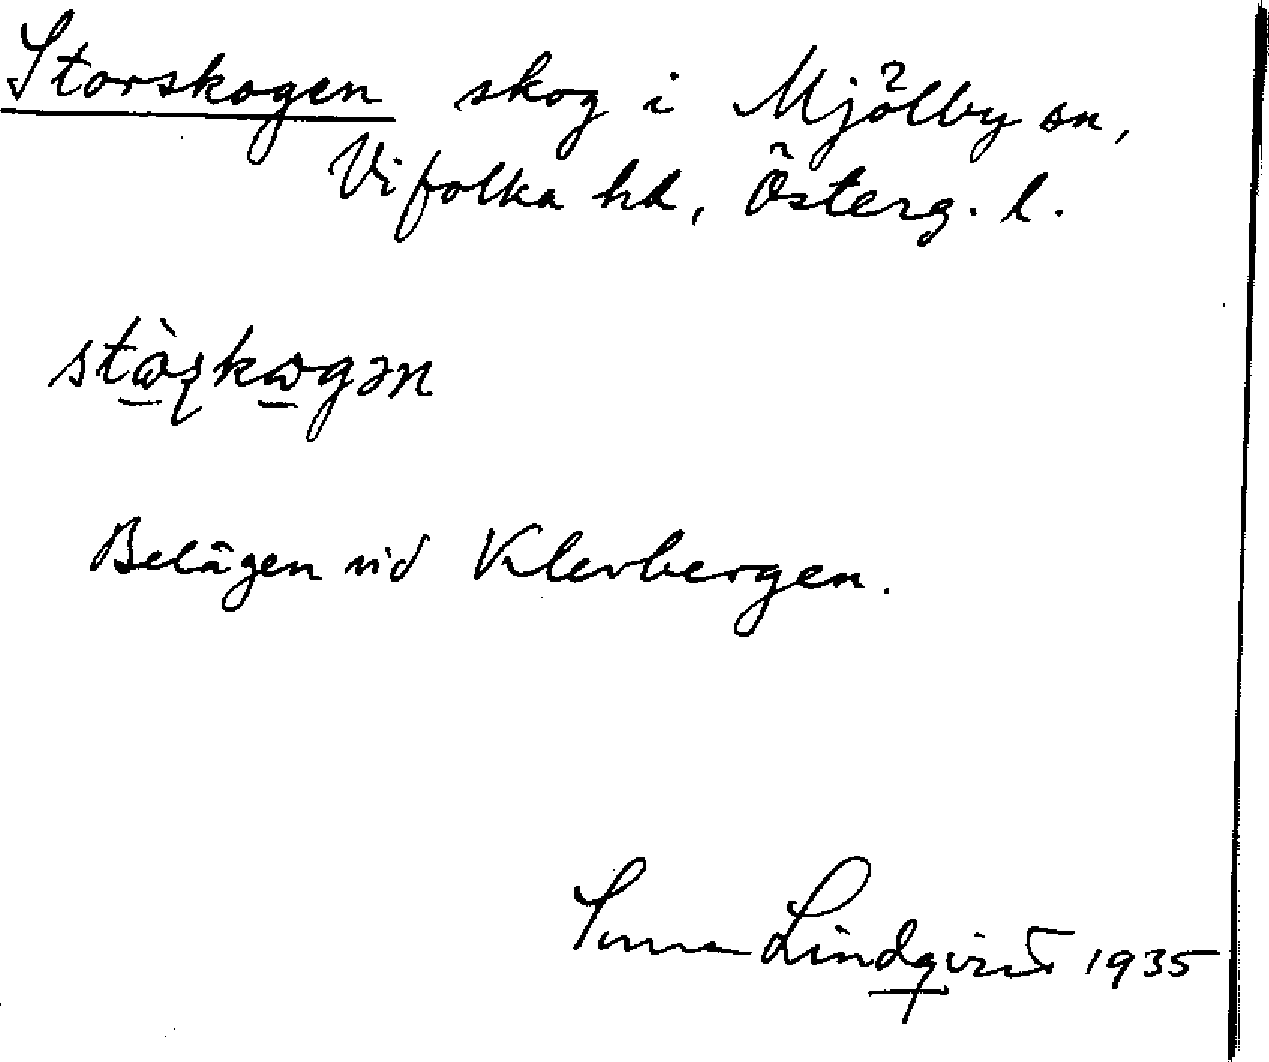 Storskogen skog i Mjölby sn,
Vifolka hd, Österg. l.
Belägen vid Klevbergen.
Lindqvist 1935